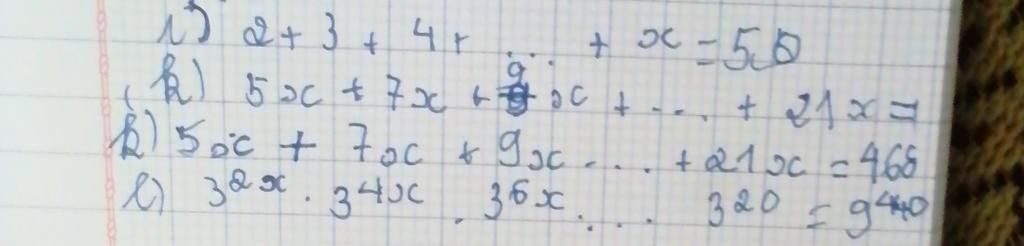 i) 2 + 3 + 4 + ... + x = 50
k) 5x + 7x + 9x + ... + 21x =
k) 5x + 7x + 9x ... + 21x = 468
l) 3^2x . 3^4x . 3^6x . ... 3^20 = 9^440